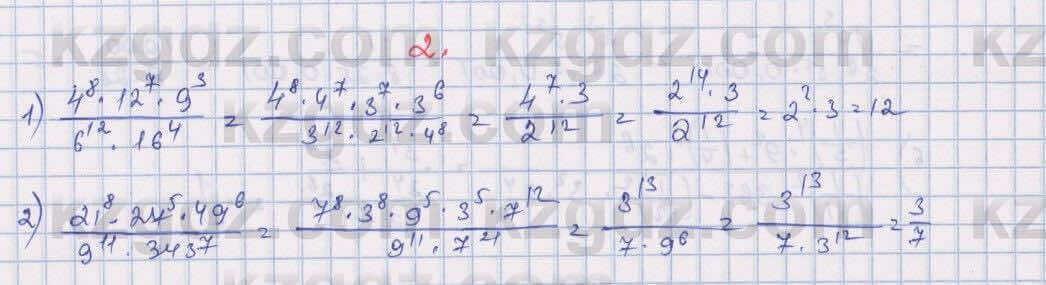 kzgdz.com kzgdz.com kz
2.
1) 4^8 · 12^7 · 9^3 / 6^12 · 16^4 = 4^8 · 4^7 · 3^7 · 3^6 / 3^12 · 2^12 · 4^8 = 4^7 · 3 / 2^12 = 2^14 · 3 / 2^12 = 2^2 · 3 = 12
2) 21^8 · 27^5 · 49^6 / 9^11 · 343^7 = 7^8 · 3^8 · 9^5 · 3^5 · 7^12 / 9^11 · 7^21 = 3^13 / 7 · 9^6 = 3^13 / 7 · 3^12 = 3/7
kzgdz.com kzgdz.com kz